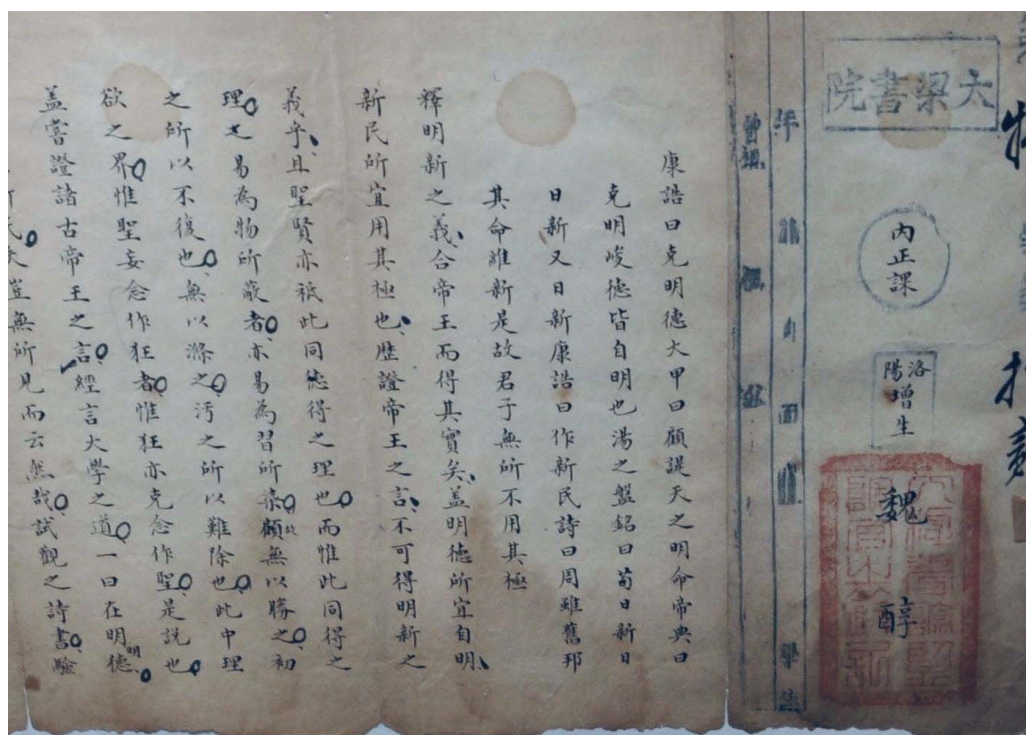 大梁書院
內正課
洛陽增生
魏醇
年
康誥曰克明德大甲曰顧諟天之明命帝典曰
克明峻德皆自明也湯之盤銘曰苟日新日
日新又日新康誥曰作新民詩曰周雖舊邦
其命維新是故君子無所不用其極
釋明新之義合帝王而得其實矣盖明德所宜自明
新民所宜用其極也歷證帝王之言不可得明新之
義乎且聖賢亦祇此同德得之理也而惟此同得之
理之易為物所蔽者亦易為習所染顧無以勝之初
之所以不復也無以滌之汚之所以難除也此中理
欲之界惟聖妄念作狂者惟狂亦克念作聖是說也
盖嘗證諸古帝王之言經言大學之道一曰在明明德
民夫豈無所見而云然哉試觀之詩書驗